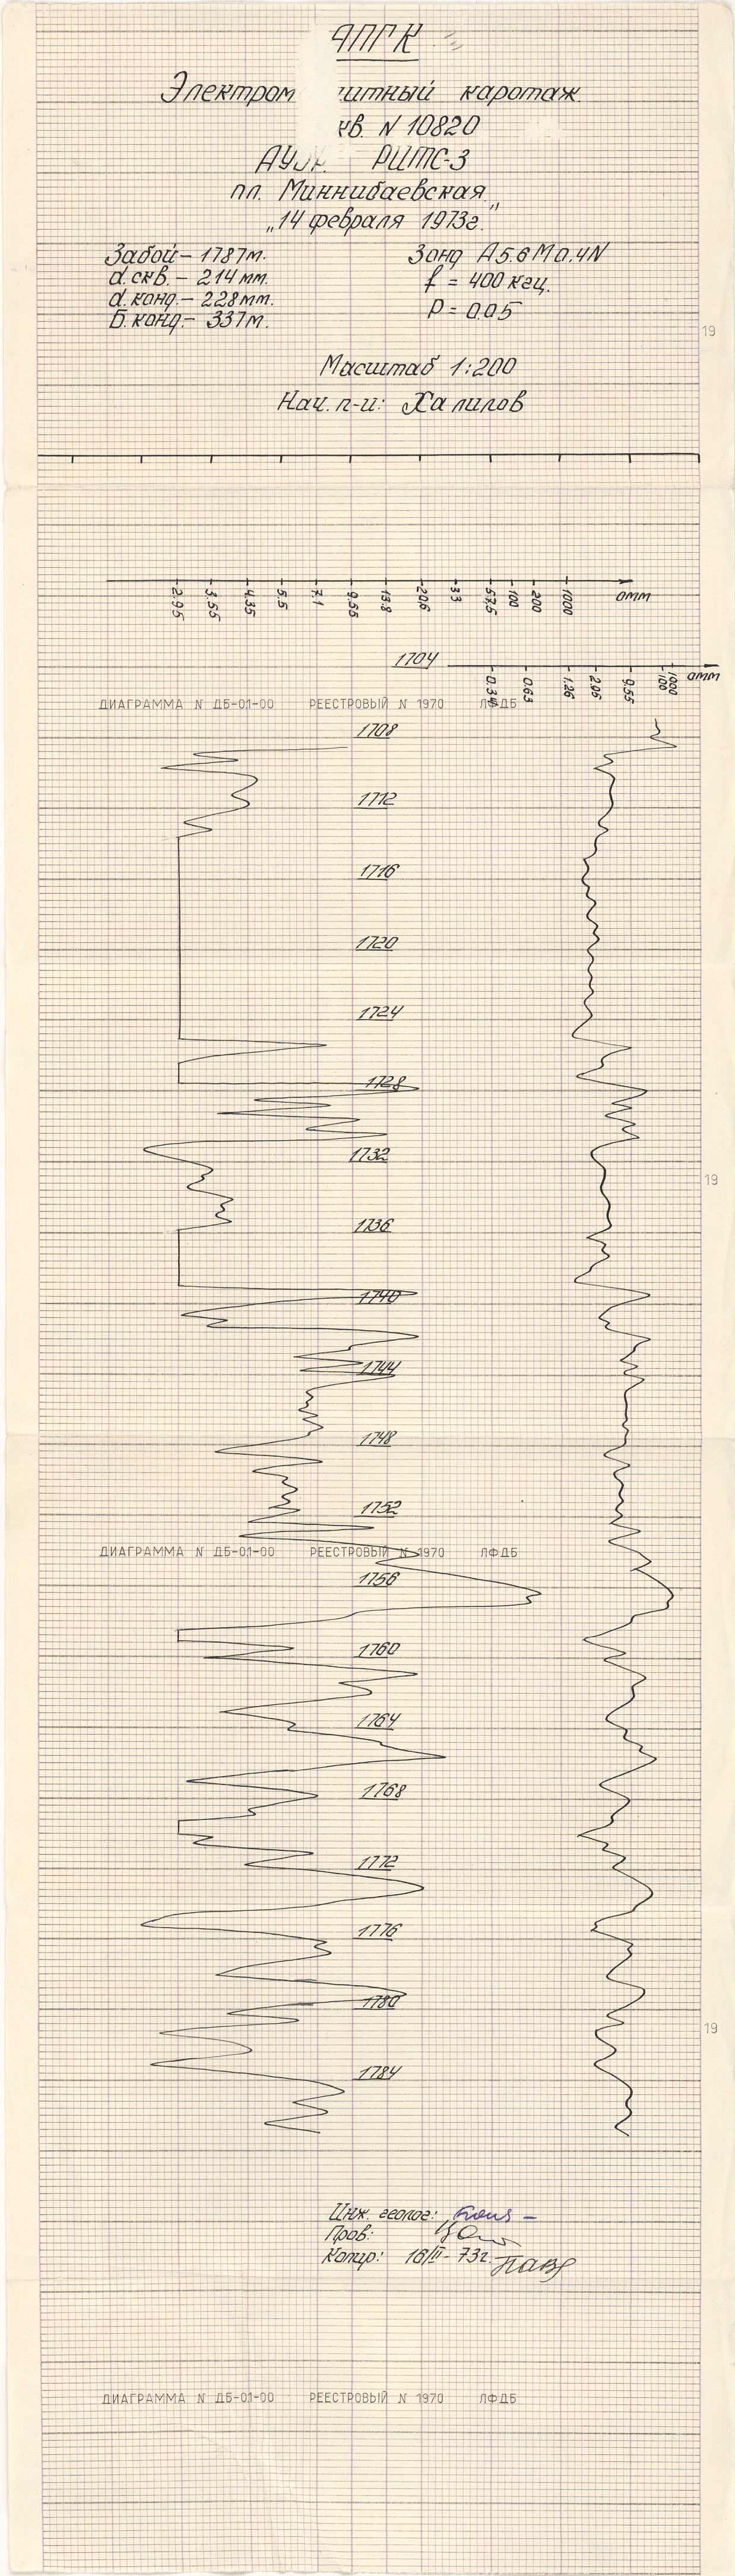 АПГК
Электром итный каротаж.
кв. N 10820
РИТС-3
пл. Миннибаевская
„14 февраля 1973г."
Забой - 1787м.
d. скв. - 214 мм.
d. конд. - 228мм.
Б. конд. - 337м.
Зонд А5.6М0.4N
f = 400 кгц.
P = 0.05
19
Масштаб 1:200
Нач. п-и: Халилов
2.95 3.55 4.35 5.5 7.1 9.55 13.8 20.6 33 57.5 100 200 1000 омм
1704
0.34 0.63 1.26 2.95 9.55 100 1000 омм
ДИАГРАММА N ДБ-01-00 РЕЕСТРОВЫЙ N 1970 ЛФДБ
1708
1712
1716
1720
1724
1728
1732
19
1736
1740
1744
1748
1752
ДИАГРАММА N ДБ-01-00 РЕЕСТРОВЫЙ N 1970 ЛФДБ
1756
1760
1764
1768
1772
1776
1780
19
1784
Инж. геолог:
Пров:
Копир: 16/II - 73г.
ДИАГРАММА N ДБ-01-00 РЕЕСТРОВЫЙ N 1970 ЛФДБ